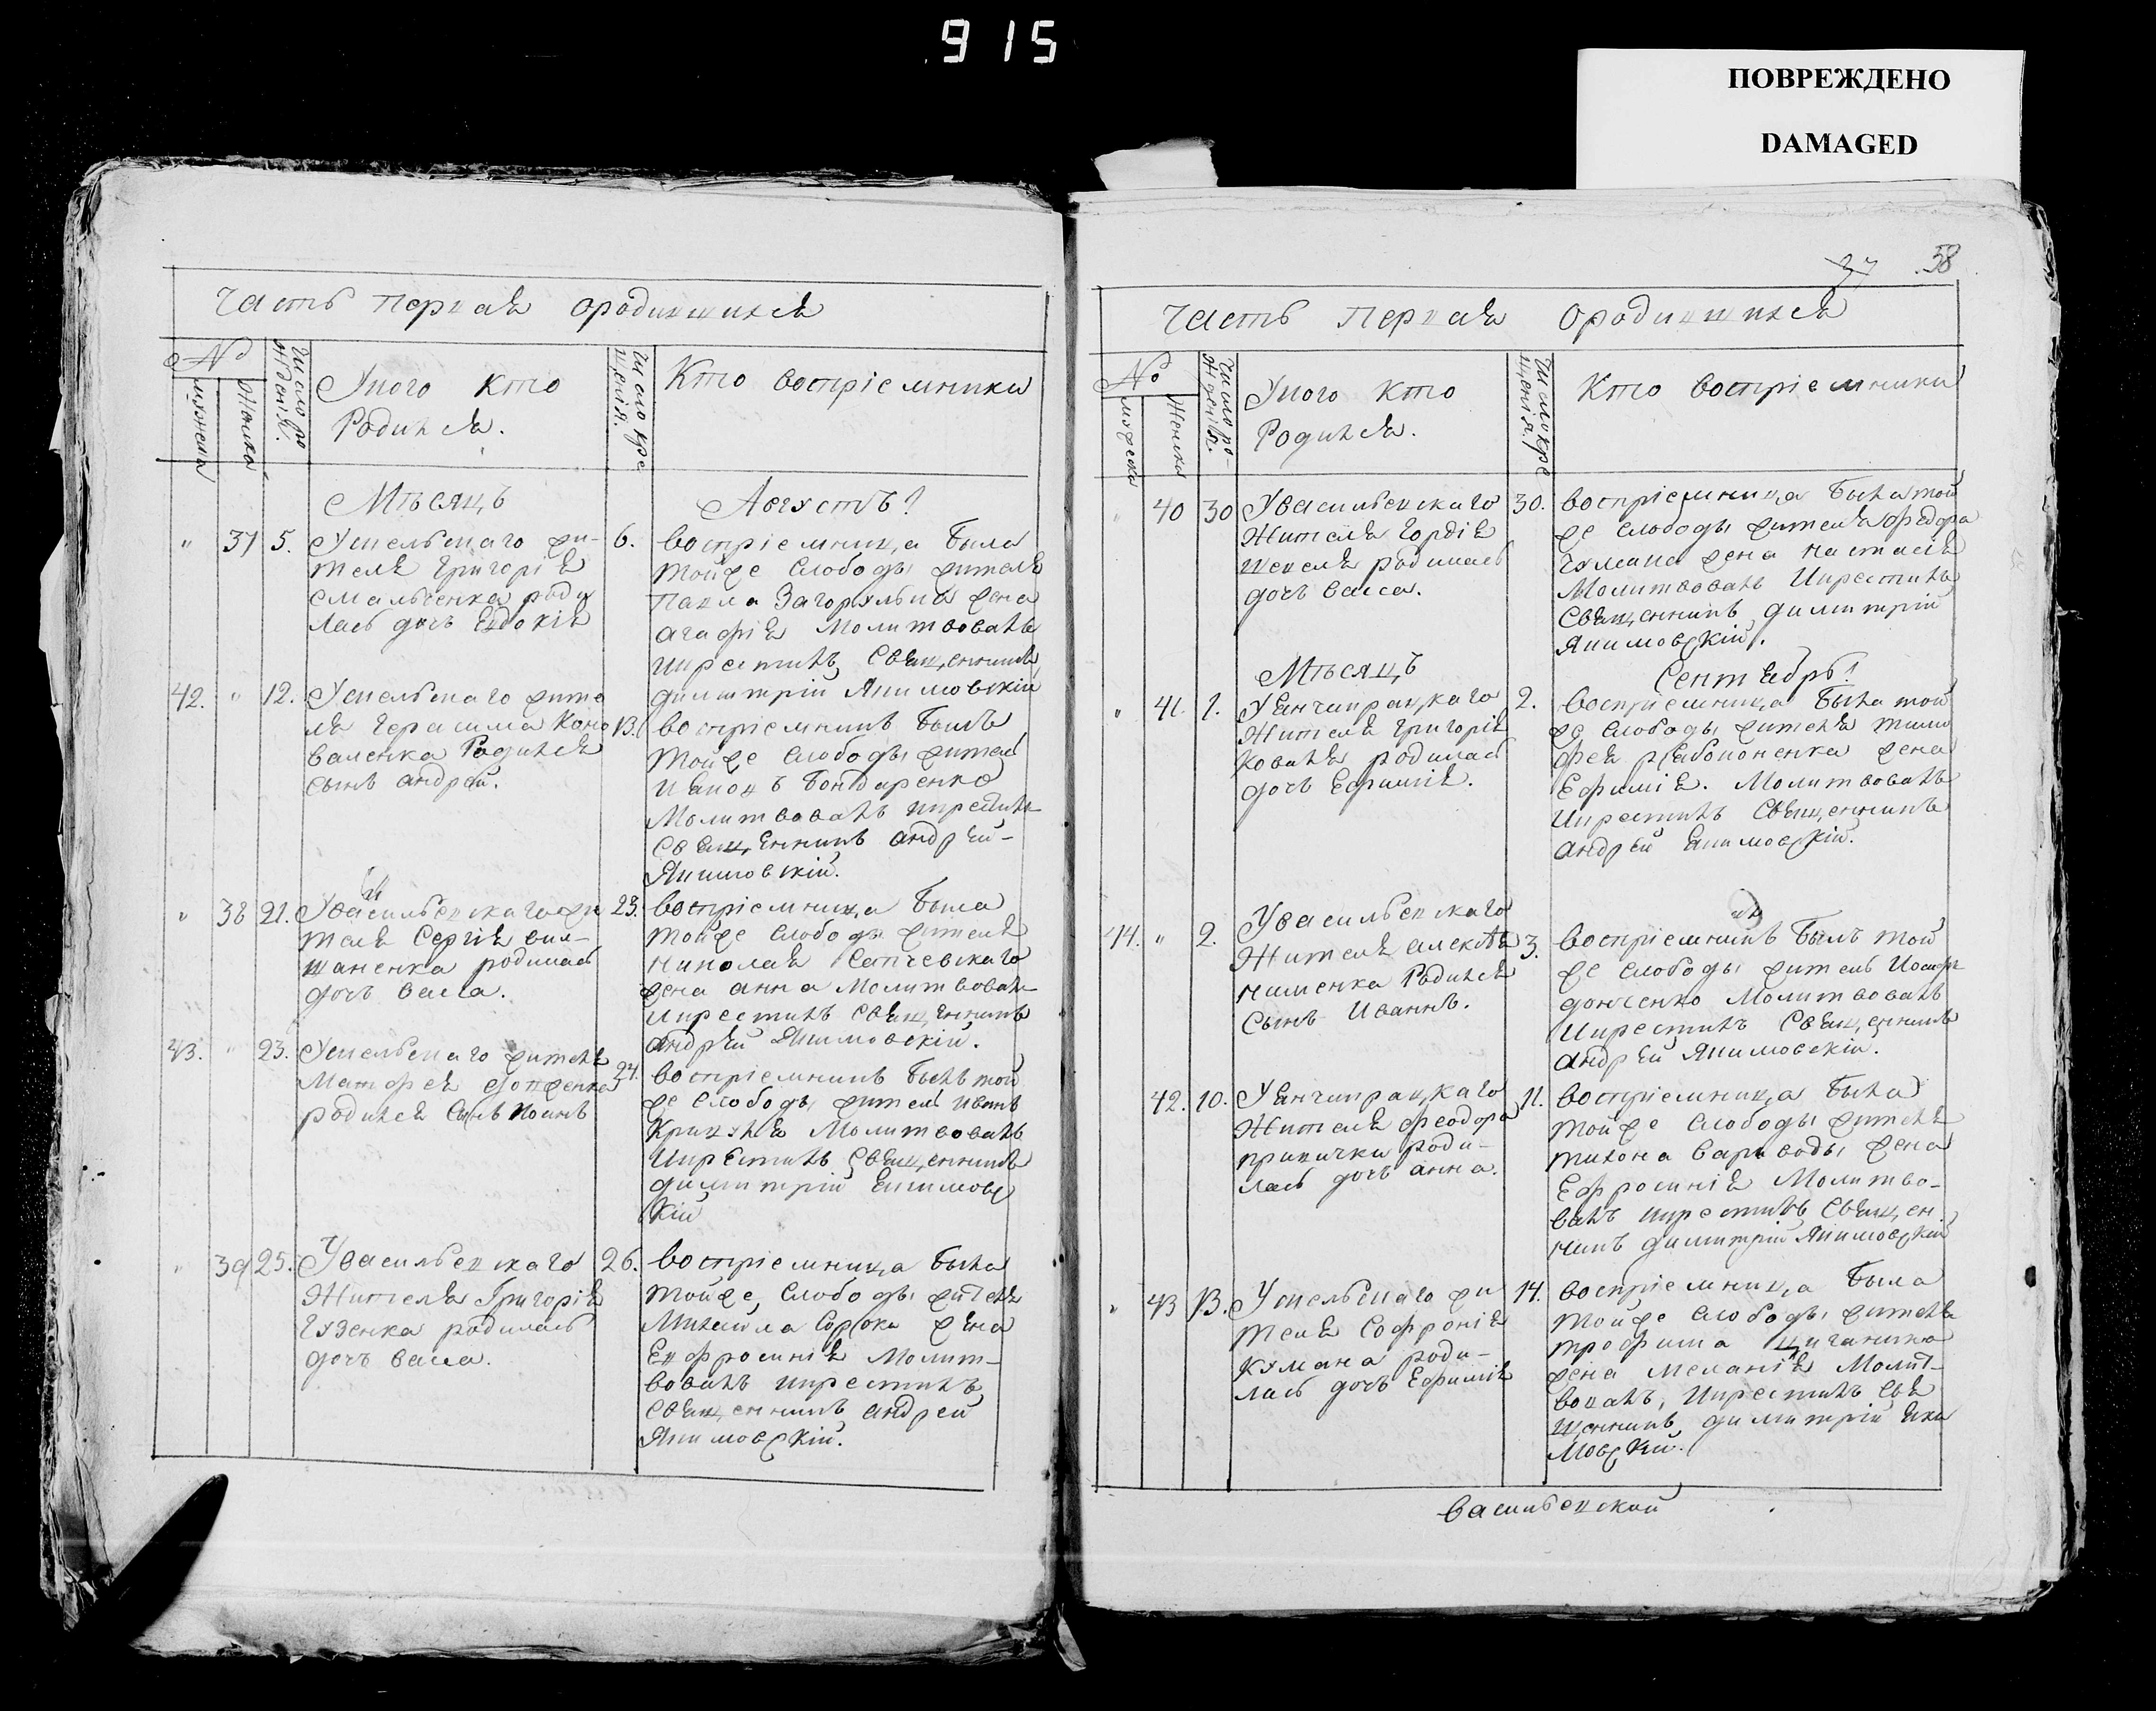 915
ПОВРЕЖДЕНО
DAMAGED
Часть первая ородившихся
№
мужеска
Женска
Число ро
жденія.
Укого кто
Родился.
Число кре
щенія.
Кто воспріемники
Мѣсяцъ
Августъ!
" 37 5.
жи-
теля Григорія
роди
лась дочь Евдокія
6.
воспріемница была
тойже Слободы жителя
Павла жена
агафія Молитвовалъ
икрестилъ Священникъ
димитрій Якимовскій
42. " 12.
жите
ля Герасима Коно
валенка Родился
сынъ андрей.
13.
воспріемникъ былъ
тойже Слободы житель
Бондаренко
Молитвовалъ икрестилъ
Священникъ андрей
Якимовскій.
" 38 21.
Увасильевскаго жи
теля Сергія
родилась
дочь васса.
23.
воспріемница была
тойже слободы жителя
николая
жена анна Молитвовалъ
икрестилъ Священникъ
андрей Якимовскій.
43. " 23.
жителя
Матфея
родился Сынъ
24.
воспріемникъ былъ той
же Слободы житель иванъ
Молитвовалъ
икрестилъ Священникъ
димитрій Якимовс
кій
" 39 25.
Увасильевскаго
Жителя Григорія
Гузенка родилась
дочь васса.
26.
воспріемница была
тойже Слободы жителя
Михаила Сороки жена
Евфросинія Молит-
вовалъ икрестилъ
Священникъ андрей
Якимовскій.
27 58
Часть Первая Ородившихся
№
мужеска
Женска
Число ро-
жденія.
Укого кто
Родился.
Число кре
щенія.
Кто воспріемники
" 40 30
Увасильевскаго
Жителя Гордія
родилась
дочь васса.
30.
воспріемница была той
же слободы жителя федора
жена настасія
Молитвовалъ Икрестилъ
Священникъ димитрій
Якимовскій.
Мѣсяцъ
Сентябрь!
" 41. 1.
Жителя Григорія
Коваля родилась
дочь Ефимія.
2.
воспріемница была той
же слободы жителя тимо
фея жена
Ефимія. Молитвовалъ
Икрестилъ Священникъ
андрей Якимовскій.
44. " 2.
Увасильевскаго
Жителя алексѣя
Родился
Сынъ Иваннъ.
3.
воспріемникъ былъ той
же слободы житель Иосифъ
донченко Молитвовалъ
Икрестилъ Священникъ
андрей Якимовскій.
42. 10.
Жителя феодора
роди-
лась дочь анна.
11.
воспріемница была
тойже Слободы жителя
тихона Вариводы жена
Ефросинія Молитво-
валъ икрестилъ Священ
никъ димитрій Якимовскій
" 43 13.
жи
теля Софронія
роди-
лась дочь Ефимія
14.
воспріемница была
тойже Слободы жителя
трофима
жена меланія Молит-
вовалъ, Икрестилъ Свя
щенникъ димитрій Яки
мовскій.
васильевской